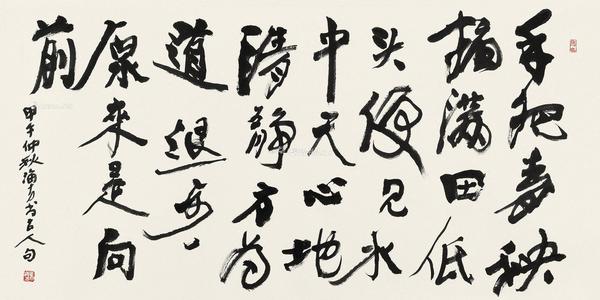 手把青秧
插满田低
头便见水
中天心地
清静方为
道退步
原来是向
前
甲午仲秋书古人句